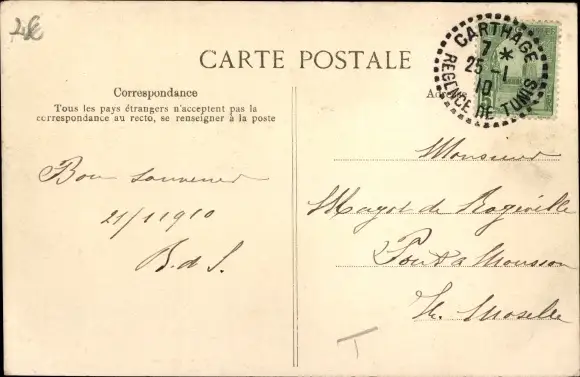 CARTE POSTALE
CARTHAGE
7 *
25 -1
10
REGENCE DE TUNIS
Correspondance
Tous les pays étrangers n'acceptent pas la
correspondance au recto, se renseigner à la poste
Bon souvenir
21/1 1910
B. d S.
Monsieur
de
Pont a Mousson
Moselle
T